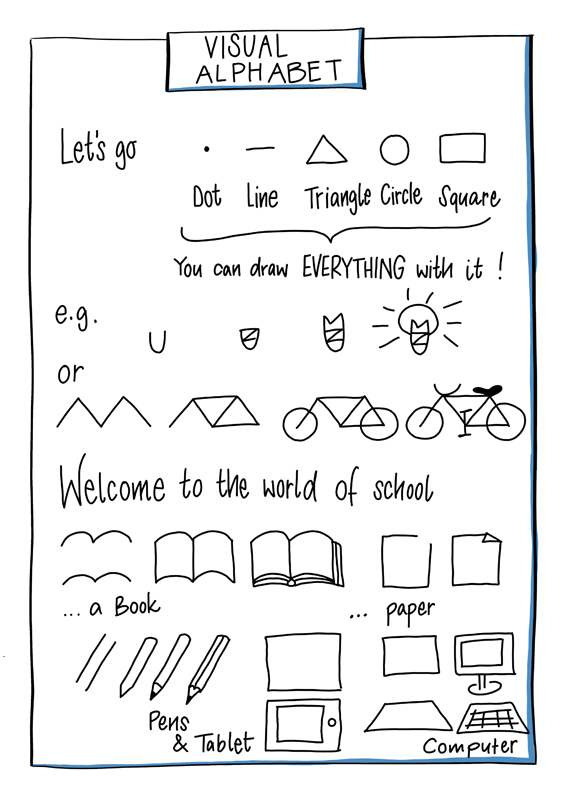 VISUAL
ALPHABET
Let's go
Dot Line Triangle Circle Square
You can draw EVERYTHING with it !
e.g.
or
Welcome to the world of school
... a Book
... paper
Pens
& Tablet
Computer